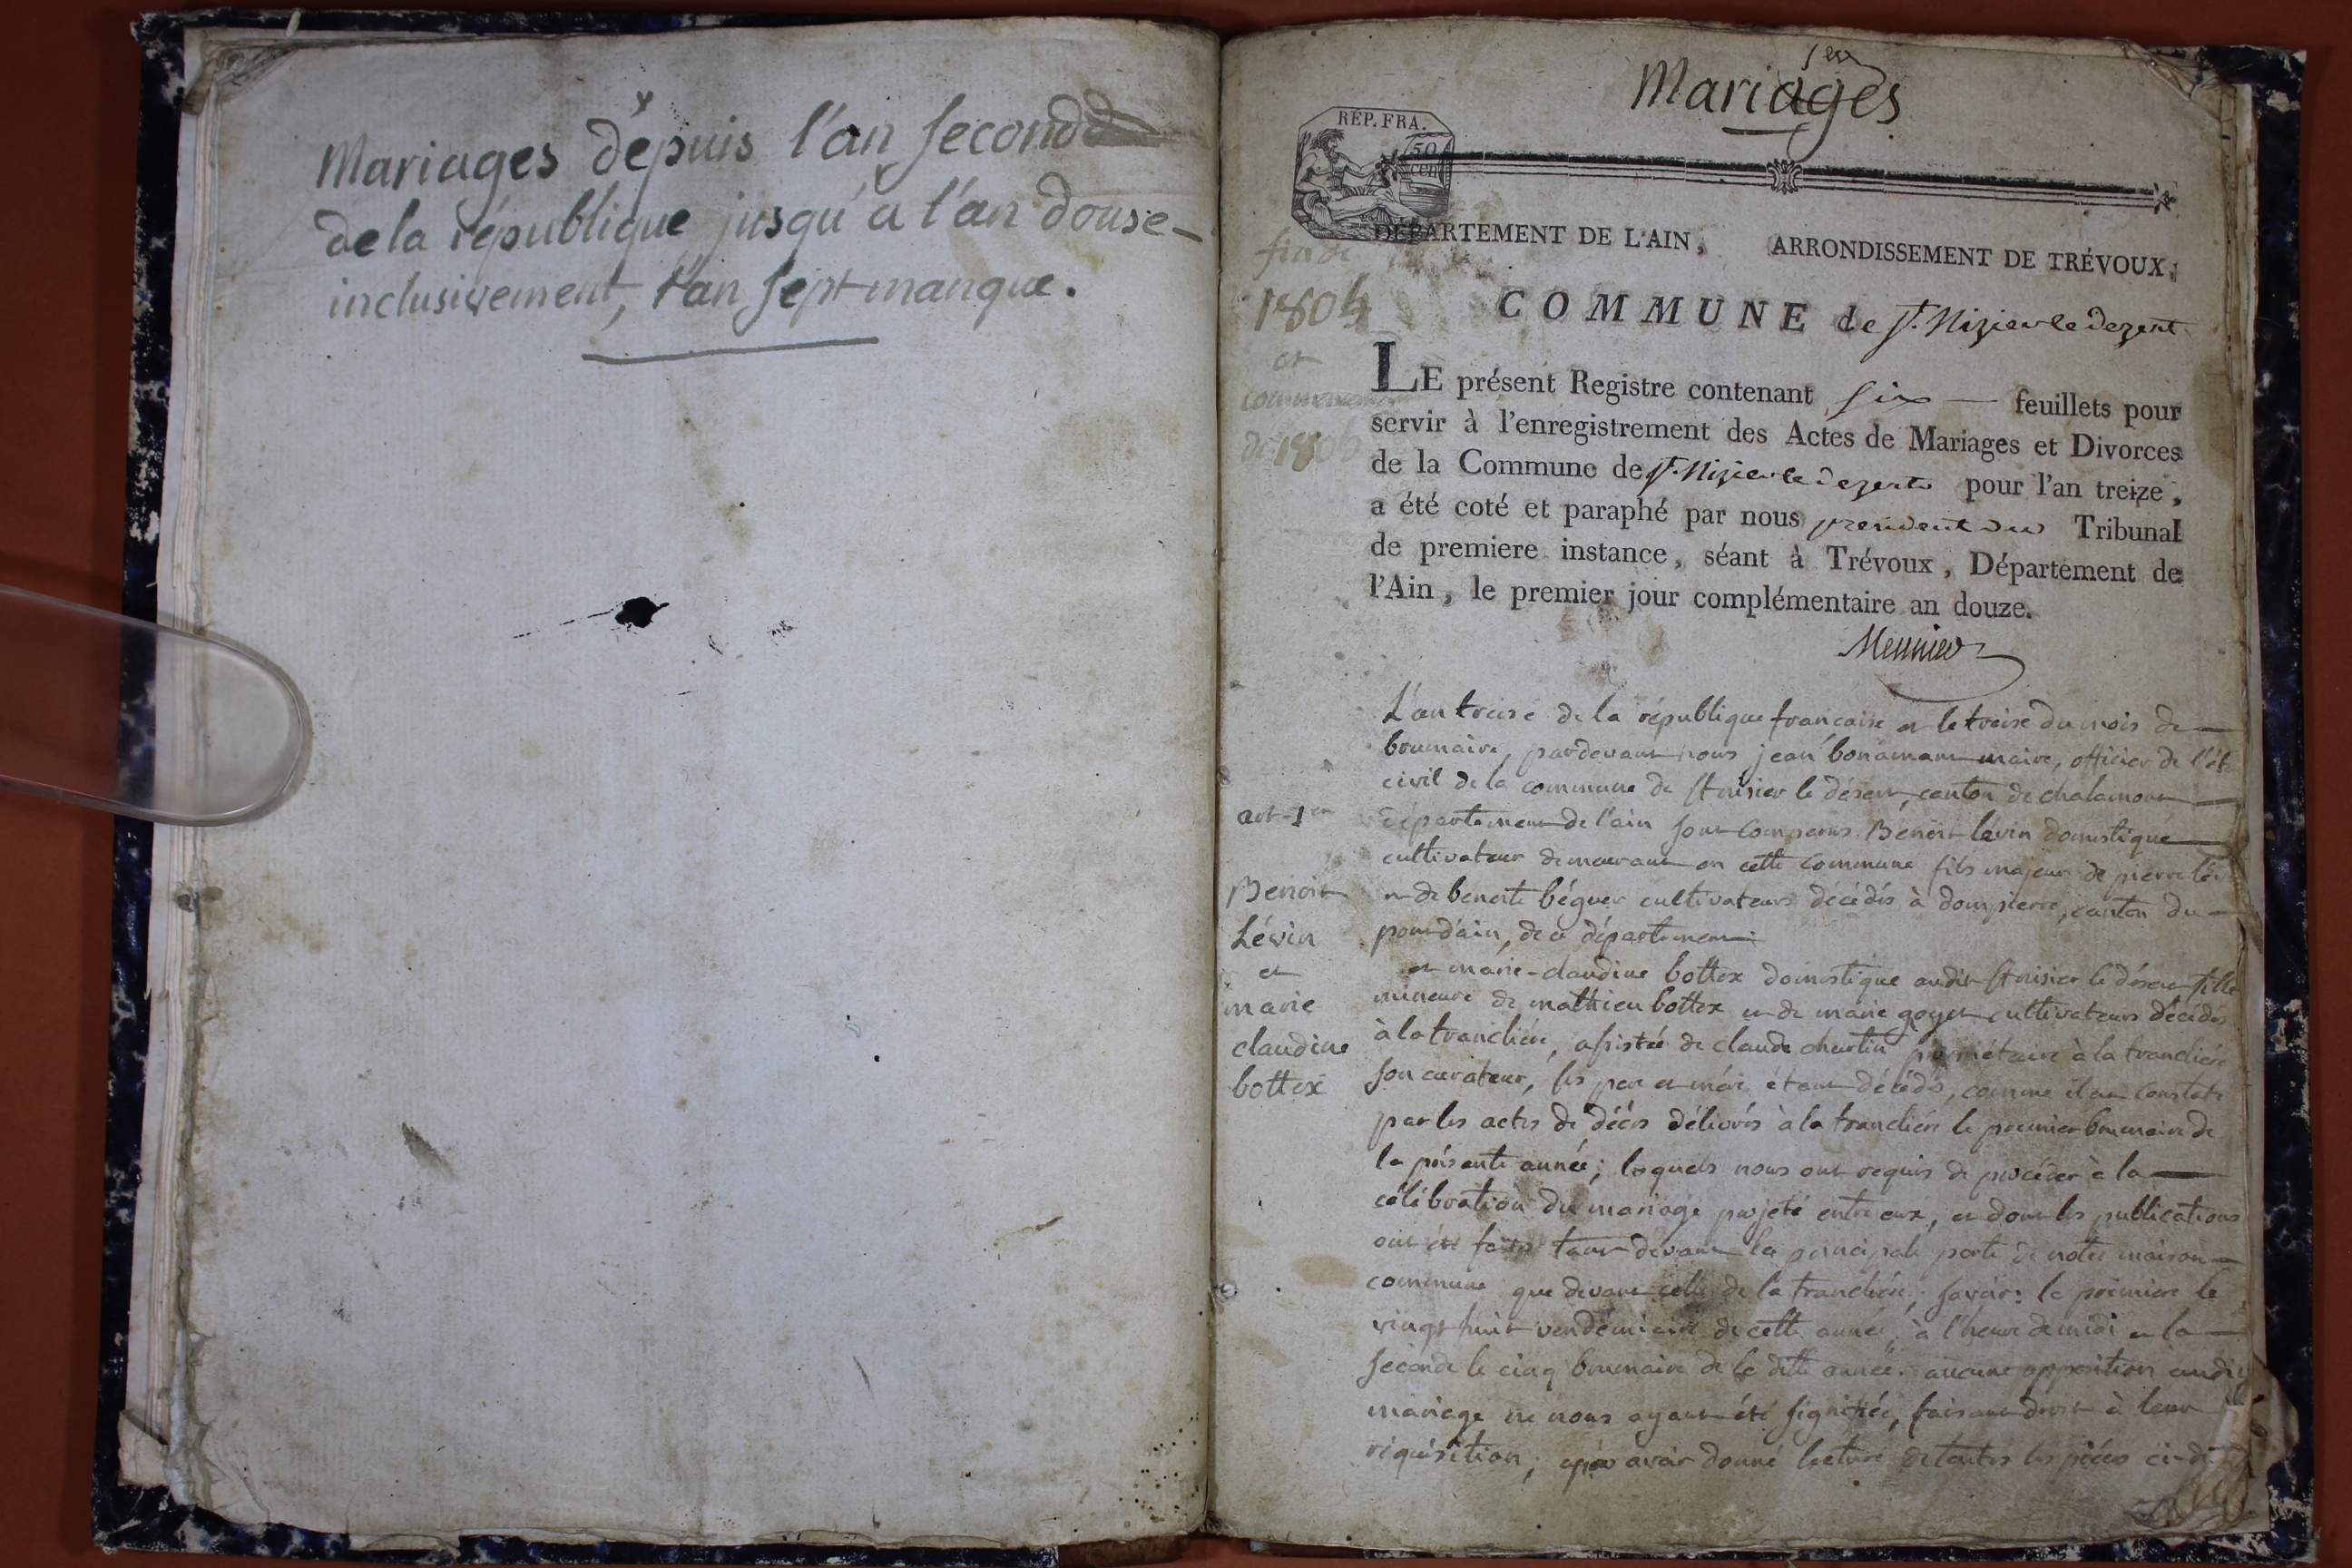 Mariages dépuis l'an second
de la république jusqu'à l'an douse -
inclusivement, l'an sept manque.
1er
Mariages
RÉP. FRA.
50
cen
DÉPARTEMENT DE L'AIN, ARRONDISSEMENT DE TRÉVOUX,
fin de
1804
et
commencement
de 180
COMMUNE de St. Nizier le dezert
LE présent Registre contenant six — feuillets pour
servir à l'enregistrement des Actes de Mariages et Divorces
de la Commune de St. Nizier le dezert pour l'an treize,
a été coté et paraphé par nous president du Tribunal
de premiere instance, séant à Trévoux, Département de
l'Ain, le premier jour complémentaire an douze.
Meunier
L'an treise de la république française et le treise du mois de —
brumaire, pardevant nous jean bonamant maire, officier de l'ét
civil de la commune de St nisier le désert, canton de chalamont —
art. 1er
département de l'ain sont comparus Benoit lévin domestique —
cultivateur demeurant en cette commune fils majeur de pierre lév
et de benoite béguer cultivateurs décédés à dompierre, canton du —
pont d'ain, de ce département.
Benoit
Lévin
et
marie
claudine
bottex
et marie-claudine bottex domestique audit St nisier le désert fille
mineure de mathieu bottex et de marie goyet cultivateurs décédés
à la tranclière, assistée de claude charlin propriétaire à la tranclière
son curateur, ses père et mère étant décédés, comme il en constate
par les actes de décès délivrés à la tranclière le premier brumaire de
la présente année; lesquels nous ont requis de procéder à la —
célébration du mariage projeté entre eux, et dont les publications
ont été faites tant devant la principale porte de notre maison —
commune que devant celle de la tranclière, savoir: la première le
vingt huit vendémiaire de cette année, à l'heure de midi et la —
seconde le cinq brumaire de la dite année. aucune opposition audit
mariage ne nous ayant été signifiée, faisant droit à leur
réquisition, après avoir donné lecture de toutes les pièces ci-d